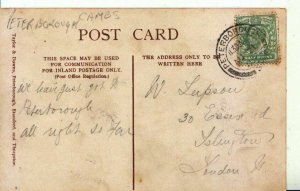 PETERBOROUGH CAMBS
POST CARD
THIS SPACE MAY BE USED
FOR COMMUNICATION
FOR INLAND POSTAGE ONLY.
(Post Office Regulation.)
THE ADDRESS ONLY TO BE
WRITTEN HERE
We have just got to
Peterborough
all right so far
W. Lepson
30
Islington
London
Taylor & Downs, Peterborough,